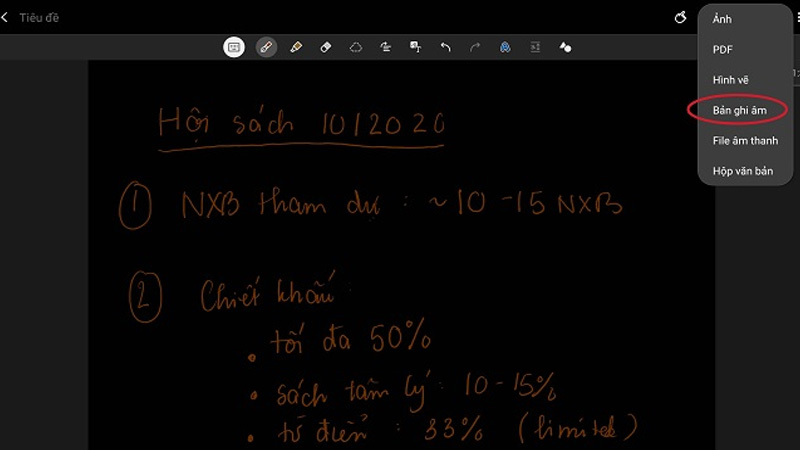 Tiêu đề
Ảnh
PDF
Hình vẽ
Bản ghi âm
File âm thanh
Hộp văn bản
Hội sách 10/2020
1 NXB tham dự : ~10 - 15 NXB
2 Chiết khấu :
• tối đa 50%
• sách tâm lý : 10 - 15%
• từ điển : 33% (limited)